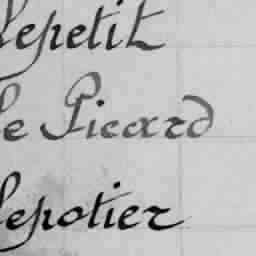 Lepetit
Le Picard
Lepotier